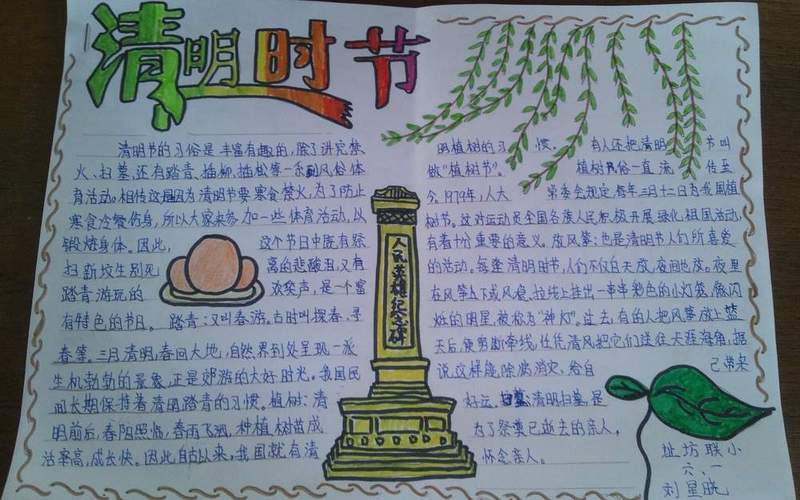 清明时节
清明节的习俗是丰富有趣的，除了讲究禁
火、扫墓，还有踏青、插柳、插松等一系列风俗体
育活动。相传这是因为清明节要寒食禁火，为了防止
寒食冷餐伤身，所以大家来参加一些体育活动，以
锻炼身体。因此，这个节日中既有祭
扫新坟生别死离的悲酸泪，又有
踏青游玩的欢笑声，是一个富
有特色的节日。踏青：又叫春游。古时叫探春、寻
春等。三月清明，春回大地，自然界到处呈现一派
生机勃勃的景象，正是郊游的大好时光。我国民
间长期保持着清明踏青的习惯。植树：清
明前后，春阳照临，春雨飞洒，种植树苗成
活率高，成长快。因此自古以来，我国就有清
人民英雄纪念碑
明植树的习惯。有人还把清明节叫
做“植树节”。植树风俗一直流传至
今。1979年，人大常委会规定，每年三月十二日为我国植
树节。这对运动员全国各族人民积极开展绿化祖国活动，
有着十分重要的意义。放风筝：也是清明节人们所喜爱
的活动。每逢清明时节，人们不仅白天放，夜间也放。夜里
在风筝下或风稳拉线上挂上一串串彩色的小灯笼，像闪
烁的明星，被称为“神灯”。过去，有的人把风筝放上蓝
天后，便剪断牵线，任凭清风把它们送往天涯海角，据
说这样能除病消灾，给自己带来
好运。清明扫墓，是
为了祭奠已逝去的亲人，
怀念亲人。
址坊联小
六、一
刘星晓